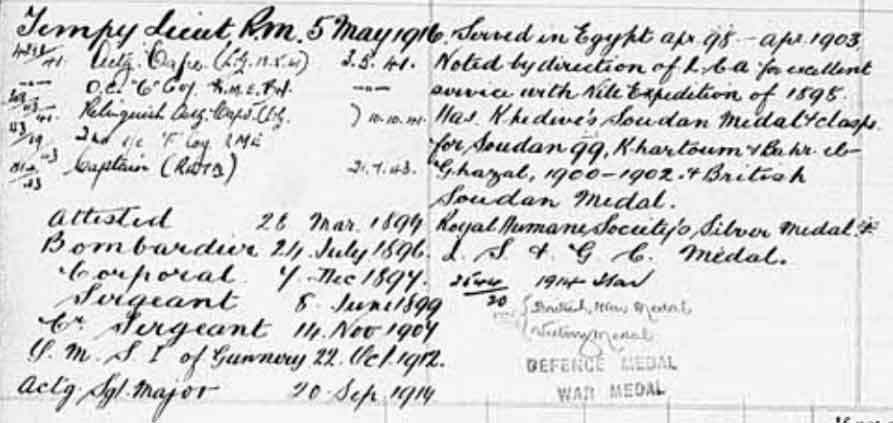 Tempy Lieut R.M. 5 May 1916. Served in Egypt apr. 98 - apr. 1903
Actg. Capt. 2.5.41. Noted by direction of L.C.A. for excellent
O.C. "C" Coy R.M.E. service with Nile Expedition of 1898.
Relinquish Actg. Capt. ) 10.10.41. Has Khedive's Soudan Medal & clasps
2nd i/c "F" Coy RME for Soudan 99, Khartoum & Bahr-el-
Captain 21.7.43. Ghazal, 1900-1902. & British
Soudan Medal.
Attested 28 Mar. 1894 Royal Humane Society's Silver Medal &
Bombardier 24 July 1896. L. S. & G. C. Medal.
Corporal 7 Dec 1897. 1914 Star
Sergeant 8 June 1899 British War Medal
Cr. Sergeant 14 Nov 1904 Victory Medal
Q. M. S. I of Gunnery 22. Oct. 1912. DEFENCE MEDAL
Actg. Sgt. Major 20 Sep. 1914 WAR MEDAL